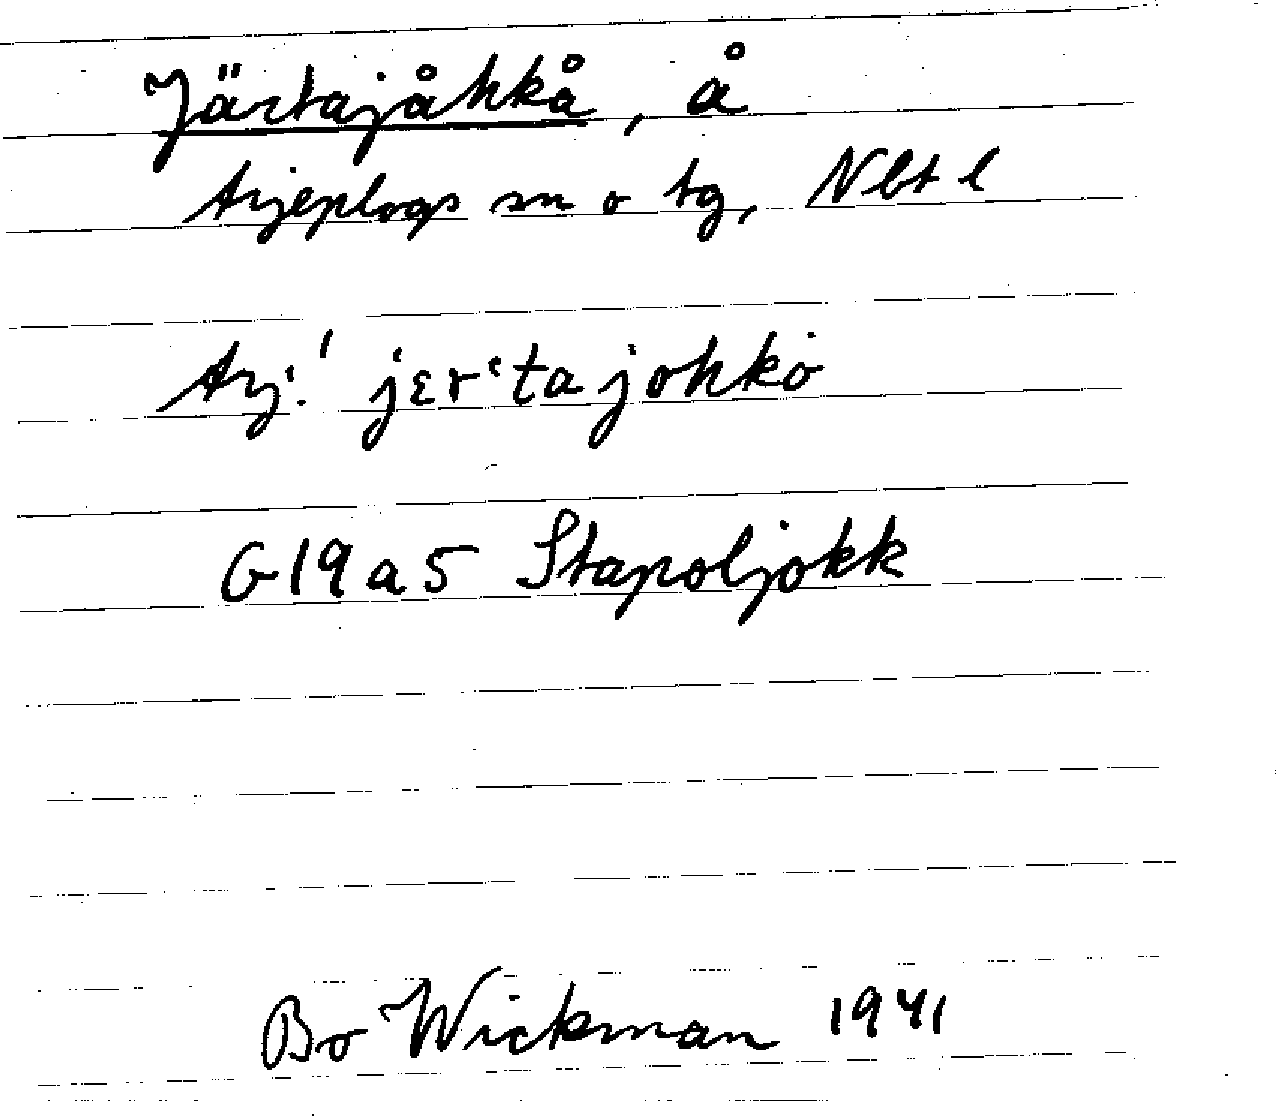 Järtajåhkå, å
Arjeplogs sn o tg, Nbt l
Arj: ' jɛrˑta johkȯ
G19a5 Stapoljokk
Bo Wickman 1941